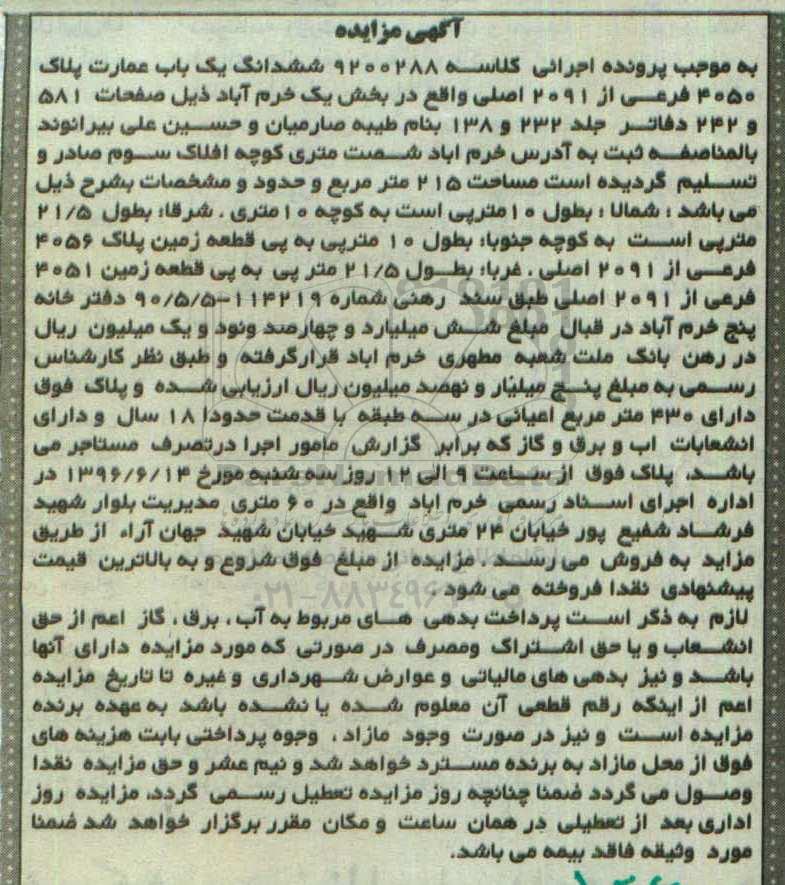 آگهی مزایده
به موجب پرونده اجرائی کلاسه ۹۲۰۰۲۸۸ ششدانگ یک باب عمارت پلاک
۴۰۵۰ فرعی از ۲۰۹۱ اصلی واقع در بخش یک خرم آباد ذیل صفحات ۵۸۱
و ۲۴۲ دفاتر جلد ۲۳۲ و ۱۳۸ بنام طیبه صارمیان و حسین علی بیرانوند
بالمناصفه ثبت به آدرس خرم اباد شصت متری کوچه افلاک سوم صادر و
تسلیم گردیده است مساحت ۲۱۵ متر مربع و حدود و مشخصات بشرح ذیل
می باشد : شمالا : بطول ۱۰ مترپی است به کوچه ۱۰متری . شرقا: بطول ۲۱/۵
مترپی است به کوچه جنوبا: بطول ۱۰ مترپی به پی قطعه زمین پلاک ۴۰۵۶
فرعی از ۲۰۹۱ اصلی . غربا: بطول ۲۱/۵ متر پی به پی قطعه زمین ۴۰۵۱
فرعی از ۲۰۹۱ اصلی طبق سند رهنی شماره ۱۱۴۲۱۹-۹۰/۵/۵ دفتر خانه
پنج خرم آباد در قبال مبلغ شش میلیارد و چهارصد ونود و یک میلیون ریال
در رهن بانک ملت شعبه مطهری خرم اباد قرارگرفته و طبق نظر کارشناس
رسمی به مبلغ پنج میلیار و نهصد میلیون ریال ارزیابی شده و پلاک فوق
دارای ۴۳۰ متر مربع اعیانی در سه طبقه با قدمت حدودا ۱۸ سال و دارای
انشعابات اب و برق و گاز که برابر گزارش مامور اجرا درتصرف مستاجر می
باشد، پلاک فوق از ساعت ۹ الی ۱۲ روز سه شنبه مورخ ۱۳۹۶/۶/۱۴ در
اداره اجرای اسناد رسمی خرم اباد واقع در ۶۰ متری مدیریت بلوار شهید
فرشاد شفیع پور خیابان ۲۴ متری شهید خیابان شهید جهان آراء از طریق
مزاید به فروش می رسد . مزایده از مبلغ فوق شروع و به بالاترین قیمت
پیشنهادی نقدا فروخته می شود .
لازم به ذکر است پرداخت بدهی های مربوط به آب ، برق ، گاز اعم از حق
انشعاب و یا حق اشتراک ومصرف در صورتی که مورد مزایده دارای آنها
باشد و نیز بدهی های مالیاتی و عوارض شهرداری و غیره تا تاریخ مزایده
اعم از اینکه رقم قطعی آن معلوم شده یا نشده باشد به عهده برنده
مزایده است و نیز در صورت وجود مازاد ، وجوه پرداختی بابت هزینه های
فوق از محل مازاد به برنده مسترد خواهد شد و نیم عشر و حق مزایده نقدا
وصول می گردد ضمنا چنانچه روز مزایده تعطیل رسمی گردد، مزایده روز
اداری بعد از تعطیلی در همان ساعت و مکان مقرر برگزار خواهد شد ضمنا
مورد وثیقه فاقد بیمه می باشد.